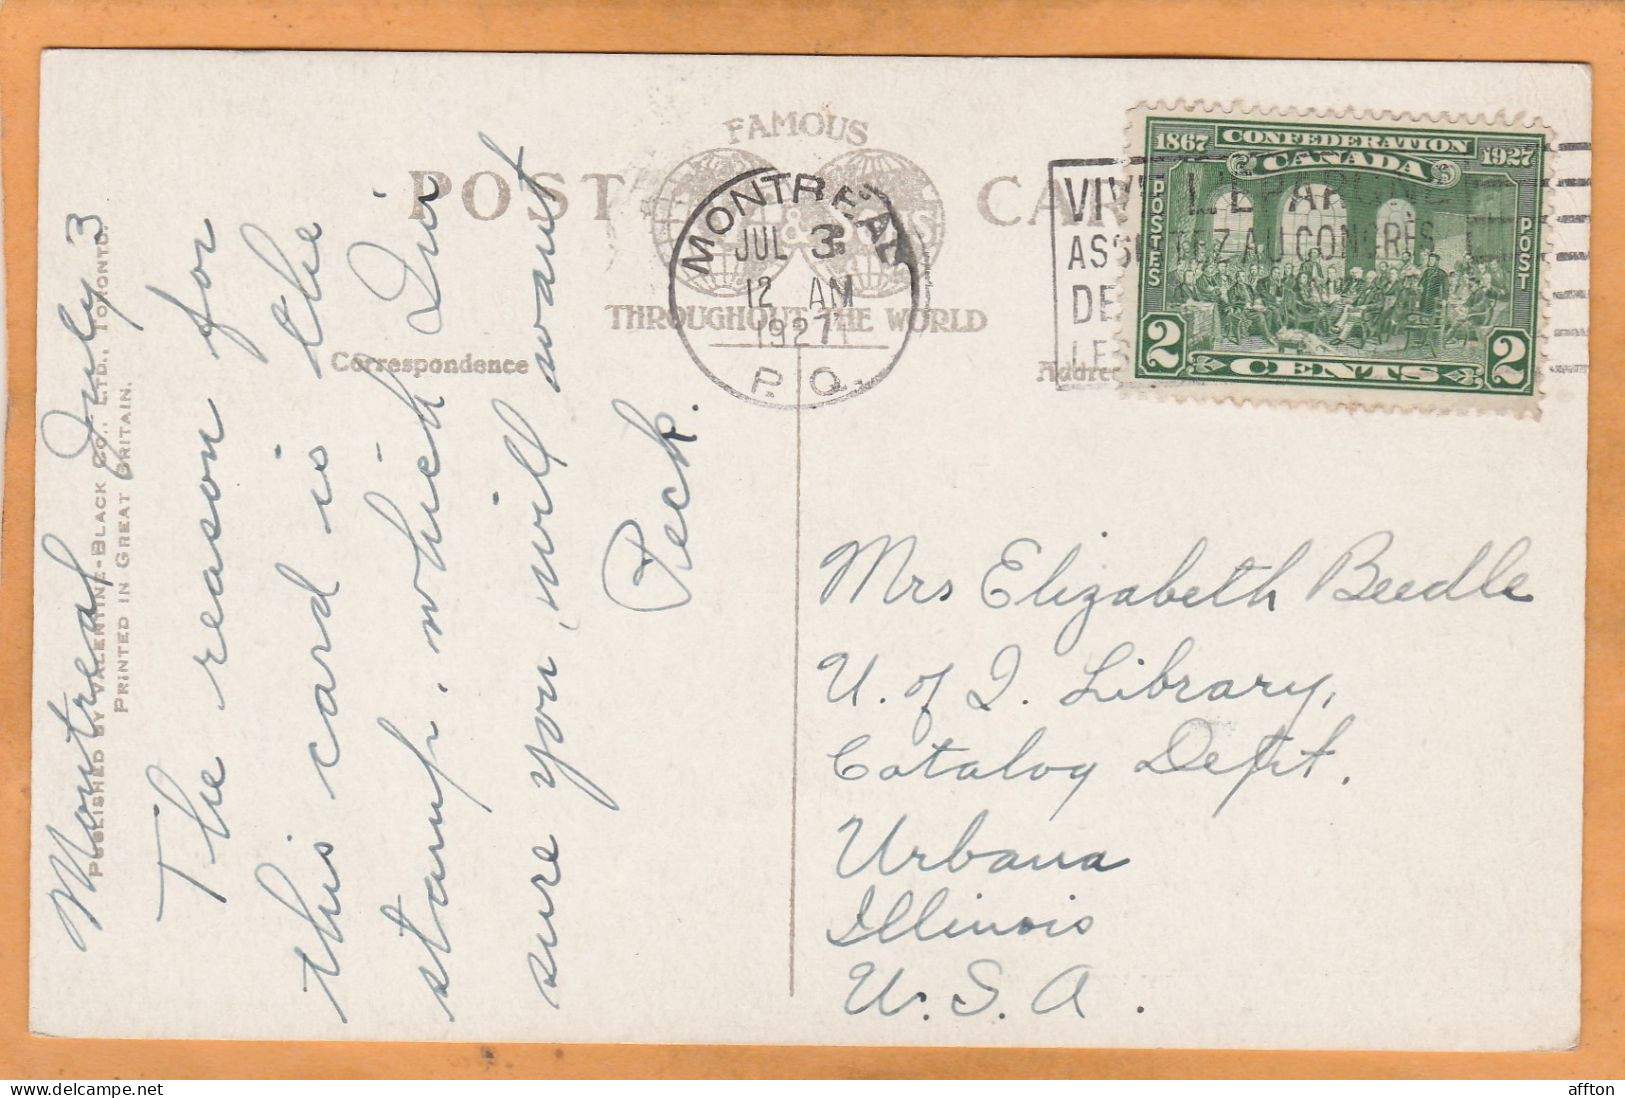 FAMOUS
POST CARD
THROUGHOUT THE WORLD
Correspondence
MONTREAL
JUL 3
12 AM
1927
P.Q.
VIVE L'EPARGNE
ASSISTEZ AU CONGRÈS
DE
LES
1867 CONFEDERATION 1927
CANADA
POSTES POST
2 CENTS 2
Montreal July 3
The reason for
this card is the
stamp, which I'm
sure you will want
Peck.
PUBLISHED BY VALENTINE-BLACK CO., LTD., TORONTO.
PRINTED IN GREAT BRITAIN.
Mrs Elizabeth Beedle
U. of I. Library,
Catalog Dept.
Urbana
Illinois
U.S.A.
affton